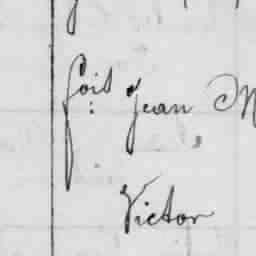 fois Jean
Victor